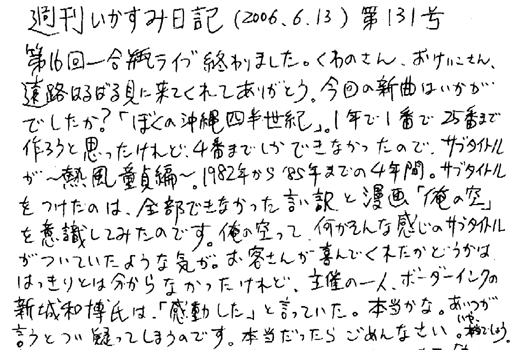 週刊いかすみ日記(2006.6.13)第131号
第16回一合瓶ライブ終わりました。くわのさん、おけいこさん、
遠路はるばる見に来てくれてありがとう。今回の新曲はいかが
でしたか?「ぼくの沖縄四半世紀」。1年で1番で25番まで
作ろうと思ったけれど、4番までしかできなかったので、サブタイトル
が～熱風童貞編～。1982年から'85年までの4年間。サブタイトル
をつけたのは、全部できなかった言い訳と漫画「俺の空」
を意識してみたのです。俺の空って、何かそんな感じのサブタイトル
がついていたような気が。お客さんが喜んでくれたかどうかは
はっきりとは分からなかったけれど、主催の一人、ボーダーインクの
新城和博氏は、「感動した」と言っていた。本当かな。あいつが
言うとつい疑ってしまうのです。本当だったらごめんなさい。